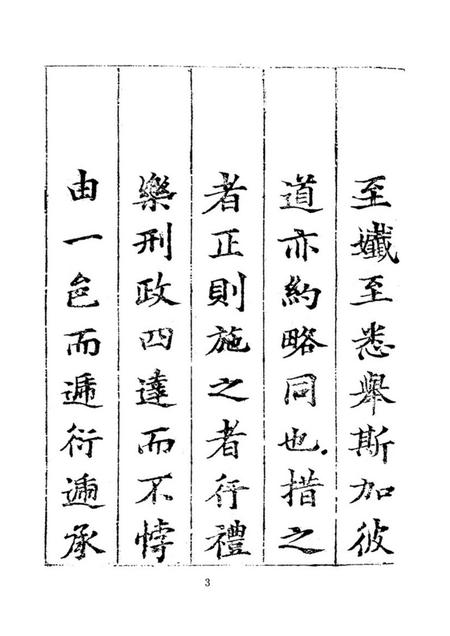 至孅至悉舉斯加彼
道亦約略同也措之
者正則施之者行禮
樂刑政四達而不悖
由一邑而遞衍遞承
3